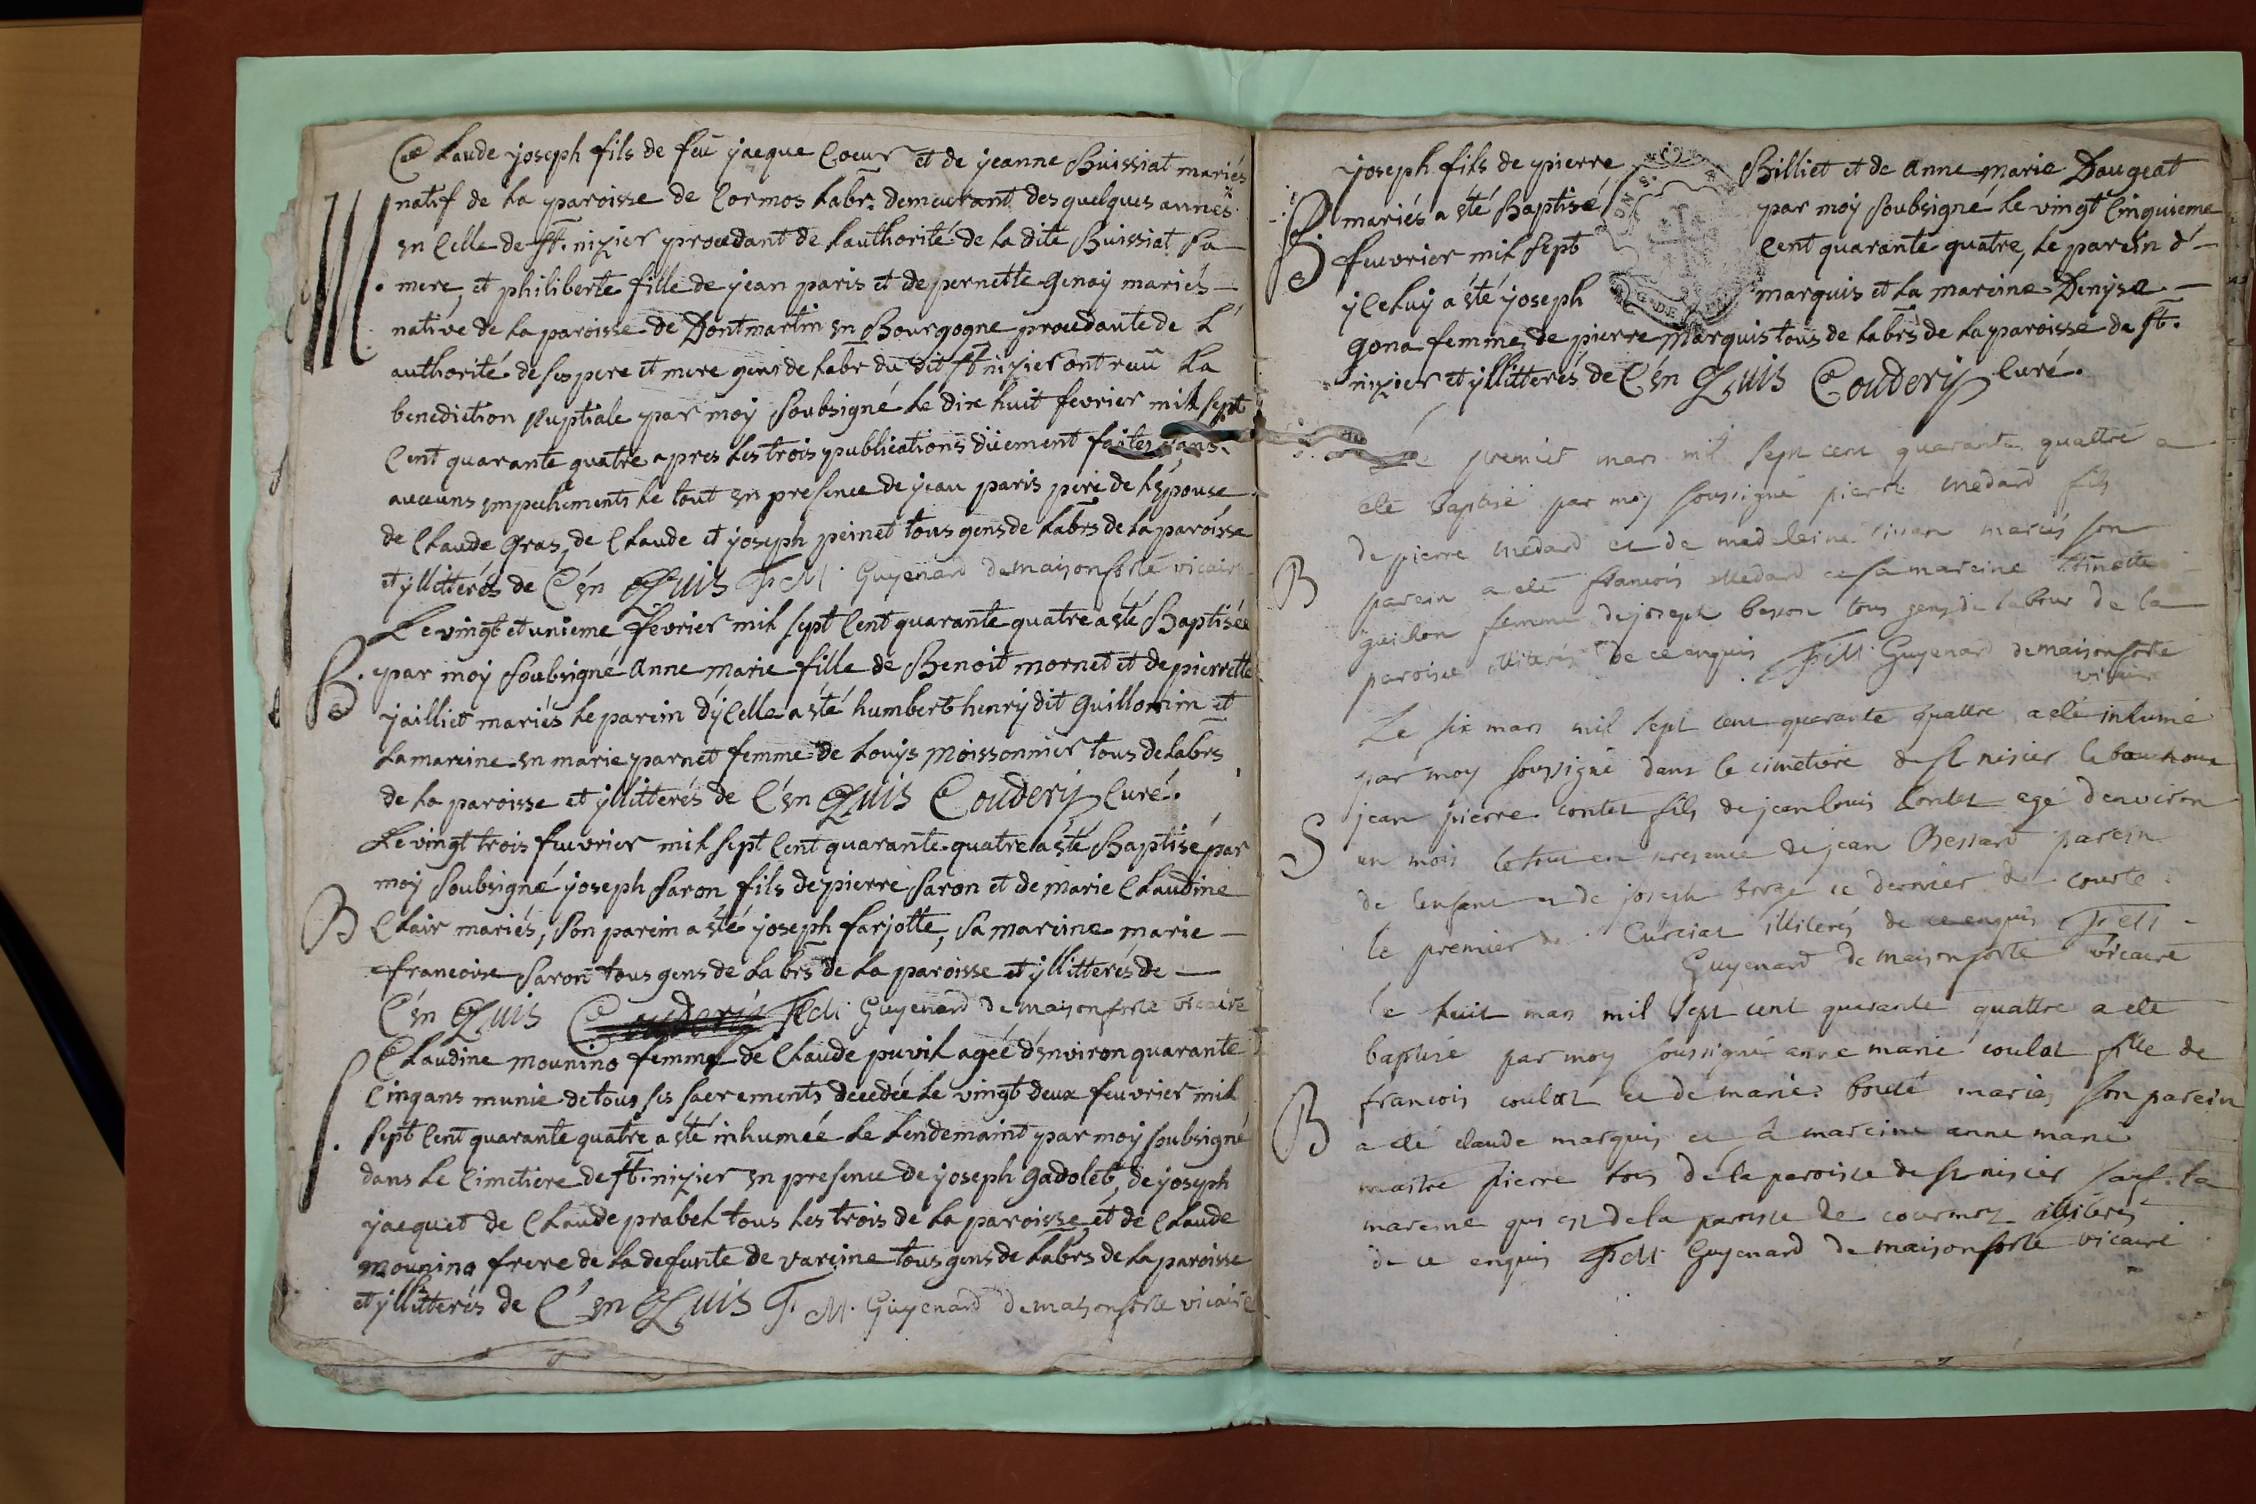 Claude joseph fils de feu jacque Coeur et de jeanne Buissiat mariés
M
natif de la paroisse de Cormos labr. demeurant des quelques années
en Celle de st. nizier procedant de l'authorité de la dite Buissiat sa
mere, et philiberte fille de jean paris et de pernette genay mariés
native de la paroisse de Dontmartin en Bourgogne procedante de l'
authorité de ses pere et mere gens de labr du dit st nizier ont recu la
benediction nuptiale par moy soubsigné le dix huit fevrier mil sept
Cent quarante quatre apres les trois publications düement faites sans
aucuns empechements le tout en presence de jean paris pere de l'epouse
de Claude gras, de Claude et joseph peinet tous gens de labrs de la paroisse
et yllitterés de C'en Quis F M Guyenard demaisonforte vicaire
Le vingt et unieme fevrier mil sept Cent quarante quatre a eté Baptisée
B. par moy soubsigné anne marie fille de Benoit mornet et de pierrette
jailliet mariés le parein d'ycelle a eté humbert henry dit guillomin et
la mareine en marie parnet femme de louys moissonnier tous de labrs
de la paroisse et yllitterés de C'en Quis Coudery Curé.
Le vingt trois feuvrier mil sept Cent quarante quatre a eté Baptisé par
moy soubsigné joseph saron fils de pierre saron et de marie Claudine
B Clair mariés, son parein a eté joseph farjotte, sa mareine marie
francoise saron tous gens de labrs de la paroisse et yllitterés de
C'en Quis Coudery F M Guyenard demaisonforte vicaire
Claudine mounino femme de Claude puvil agée d'environ quarante
S. Cinq ans munie de tous ses sacrements decedée le vingt deux feuvrier mil
sept Cent quarante quatre a eté inhumée le lendemaint par moy soubsigné
dans le Cimetiere de st. nizier en presence de joseph gadolet, de joseph
jacquet de Claude prabel tous les trois de la paroisse et de Claude
mounino frere de la defunte de vareine tous gens de labrs de la paroisse
et yllitterés de C'en Quis F. M. Guyenard demaisonforte vicaire
joseph fils de pierre Billiet et de anne marie Daugeat
B mariés a eté Baptisé par moy soubsigné le vingt Cinquieme
feuvrier mil sept Cent quarante quatre, le parein d'
yCeluy a eté joseph marquis et la mareine Denyse
gona femme de pierre marquis tous de labrs de la paroisse de st.
nizier et yllitterés de C'en Quis Coudery Curé.
Le premier mars mil sept cent quarante quattre a
eté baptisé par moy soussigné pierre medard fils
de pierre medard et de madeleine mariés son
B parein a eté francois medard et sa mareine
guichon femme de joseph tous gens de labour de la
paroisse illiterés de ce enquis F M Guyenard demaisonforte
vicaire
Le six mars mil sept cent quarante quattre a eté inhumé
par moy soussigné dans le cimetiere de st nisier le bouchoux
jean pierre contet fils de jean louis contet agé d'environ
S un mois le tout en presence de jean Bessard parein
de l'enfant et de joseph ce dernier de courte
le premier de Curciat illiterés de ce enquis F M
Guyenard de maisonforte vicaire
le huit mars mil sept cent quarante quattre a eté
baptisé par moy soussigné anne marie coulat fille de
francois coulat et de marie mariés son parein
B a eté claude marquis et sa mareine anne marie
maitre pierre tous de la paroisse de st nisier sauf la
mareine qui est de la paroisse de courmoz illiterés
de ce enquis F M Guyenard de maisonforte vicaire